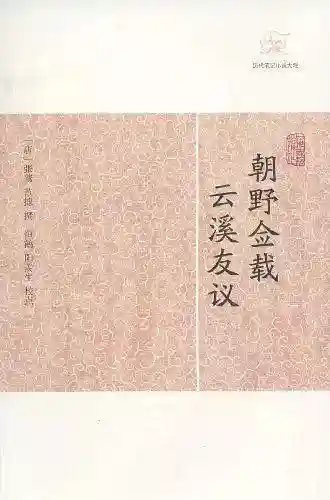 历代笔记小说大观
朝野佥载
云溪友议
[唐]张鷟 范摅 撰 恒鹤 阳羡生 校点